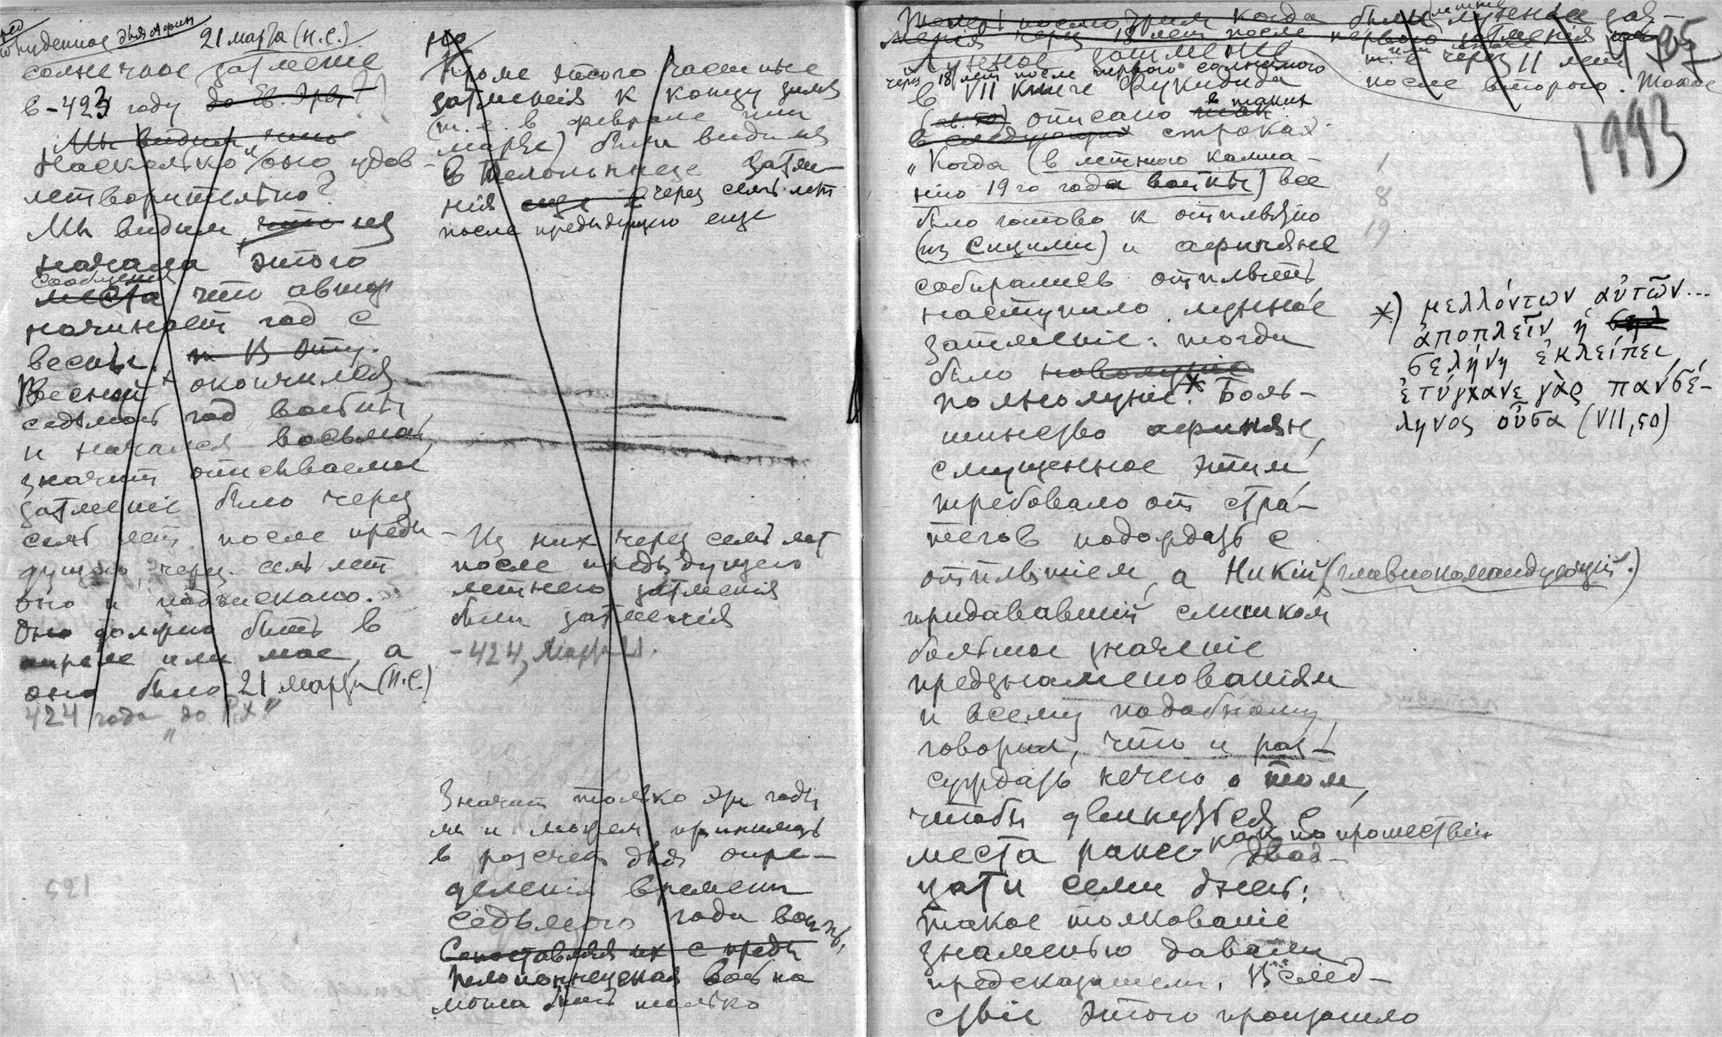 21 марта (н.с.)
солнечное затмение
в -423 году до Ев. Эры?
Мы видим что
Насколько оно удов-
летворительно?
Мы видим что из
начала этого
сообщения
места что автор
начинает год с
весны.
Весной окончился
седьмой год войны
и начался восьмой,
значит описываемое
затменіе было через
семь лет после преды-
дущего, через семь лет
оно и подыскано.
Оно должно быть в
апреле или мае, а
оно было 21 марта (н.с.)
424 года „до Р.Х."
Кроме этого частные
затменія к концу зимы
(т.е. в феврале или
марте) были видимы
в Пелопоннезе затме-
нія еще через семь лет
после предыдущего еще
Из них через семь лет
после предыдущего
летнего затменія
были затменія
-424, Марта 21.
Значит только эти годы
мы и можем принимать
в рассчет для опре-
деленія времени
седьмого года войны,
Сопоставляя их с преды
Пелопоннезская война
могла быть только
Лунное затмение
через 18 лет после первого солнечного
т.е. через 11 лет
после второго. Такое
1993
в VII книге Фукидида
(гл. 50) описано в таких
в следующих строках.
„Когда (в летнюю кампа-
нию 19го года войны) все
было готово к отплытию
(из Сицилии) и афиняне
собирались отплыть
наступило лунное
затменіе: тогда
было новолуніе
полнолуніе.* Боль-
шинство афинян,
смущенное этим
требовало от стра-
тегов подождать с
отплытием, а Никий (главнокомандующій)
придававший слишком
большое значеніе
предзнаменованіям
и всему подобному,
говорил, что и раз-
суждать нечего о том,
чтобы двинуться с
места ранее как по прошествіи
двад-
цати семи дней:
такое толкованіе
знаменью давали
предсказатели. Вслед-
ствіе этого произошло
*) μελλόντων αὐτῶν...
ἀποπλεῖν ἡ
σελήνη ἐκλείπει,
ἐτύγχανε γὰρ πανσέ-
ληνος οὖσα (VII, 50)
1
8
19